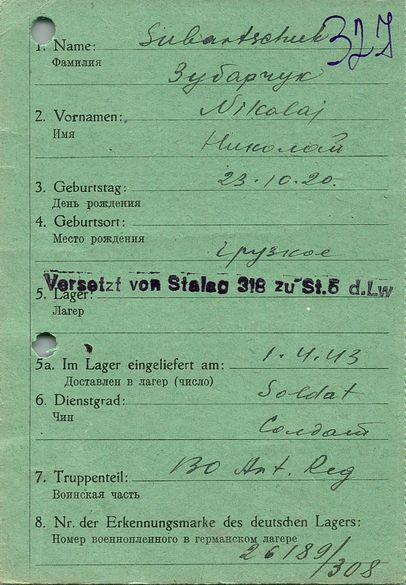 327
1. Name: Subartschuk
Фамилия Зубарчук
2. Vornamen: Nikolaj
Имя Николай
3. Geburtstag: 23.10.20.
День рождения
4. Geburtsort:
Место рождения Грузкое
Versetzt von Stalag 318 zu St.5 d.Lw
5. Lager:
Лагер
5a. Im Lager eingeliefert am: 1.4.43
Доставлен в лагер (число)
6. Dienstgrad: Soldat
Чин Солдат
7. Truppenteil: 130 Art. Reg
Воинская часть
8. Nr. der Erkennungsmarke des deutschen Lagers:
Номер военнопленного в германском лагере
26189/308